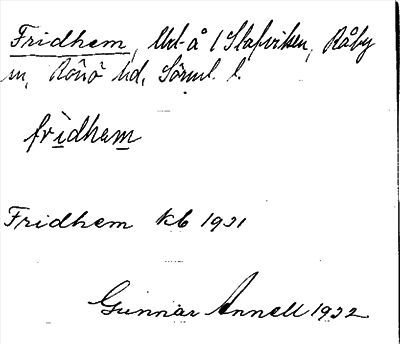 Fridhem, lht å 1 Slafviken, Råby
sn, Rönö hd, Sörml. l.
fridhem
Fridhem kb 1931
Gunnar Annell 1932